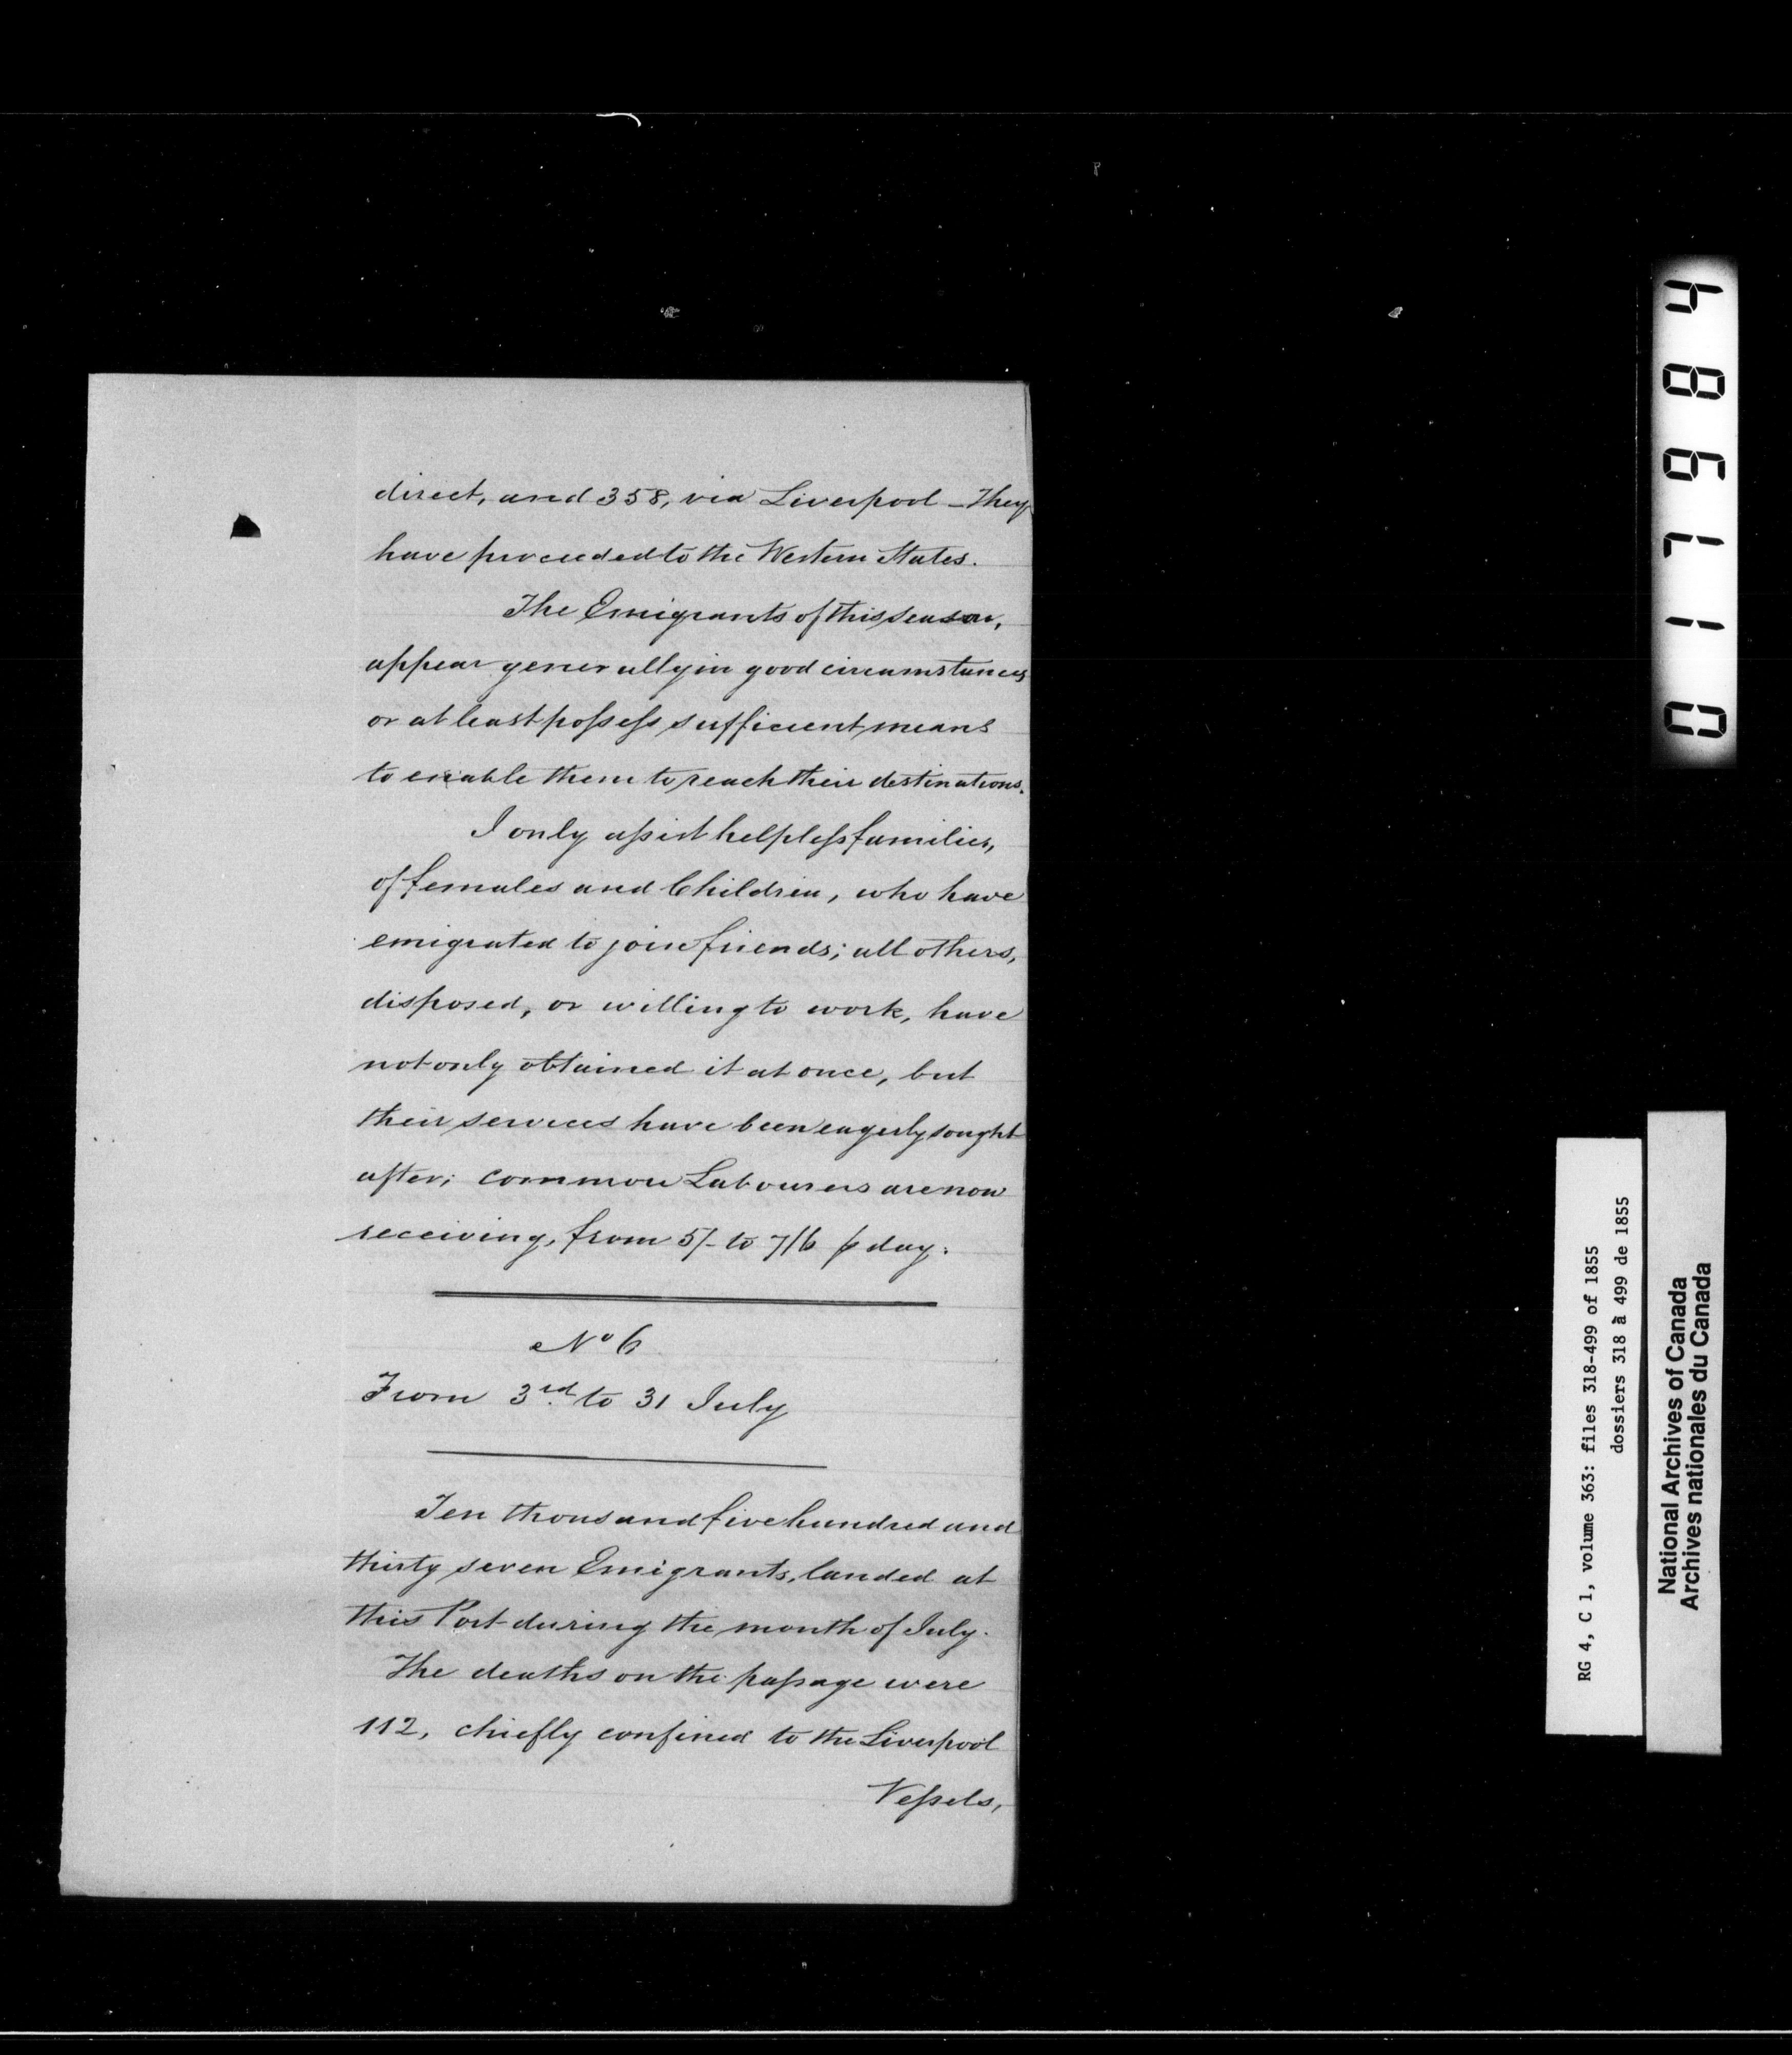 direct, and 358, via Liverpool - They
have proceeded to the Western States.
The Emigrants of this season,
appear generally in good circumstances
or at least possess sufficient means
to enable them to reach their destinations.
I only assist helpless families,
of females and Children, who have
emigrated to join friends; all others,
disposed, or willing to work, have
not only obtained it at once, but
their services have been eagerly sought
after; common Labourers are now
receiving, from 5/- to 7/6 p day.
No 6
From 3rd. to 31 July
Ten thousand five hundred and
thirty seven Emigrants, landed at
this Port during the month of July.
The deaths on the passage were
112, chiefly confined to the Liverpool
Vessels,
017984
RG 4, C 1, volume 363: files 318-499 of 1855
dossiers 318 à 499 de 1855
National Archives of Canada
Archives nationales du Canada